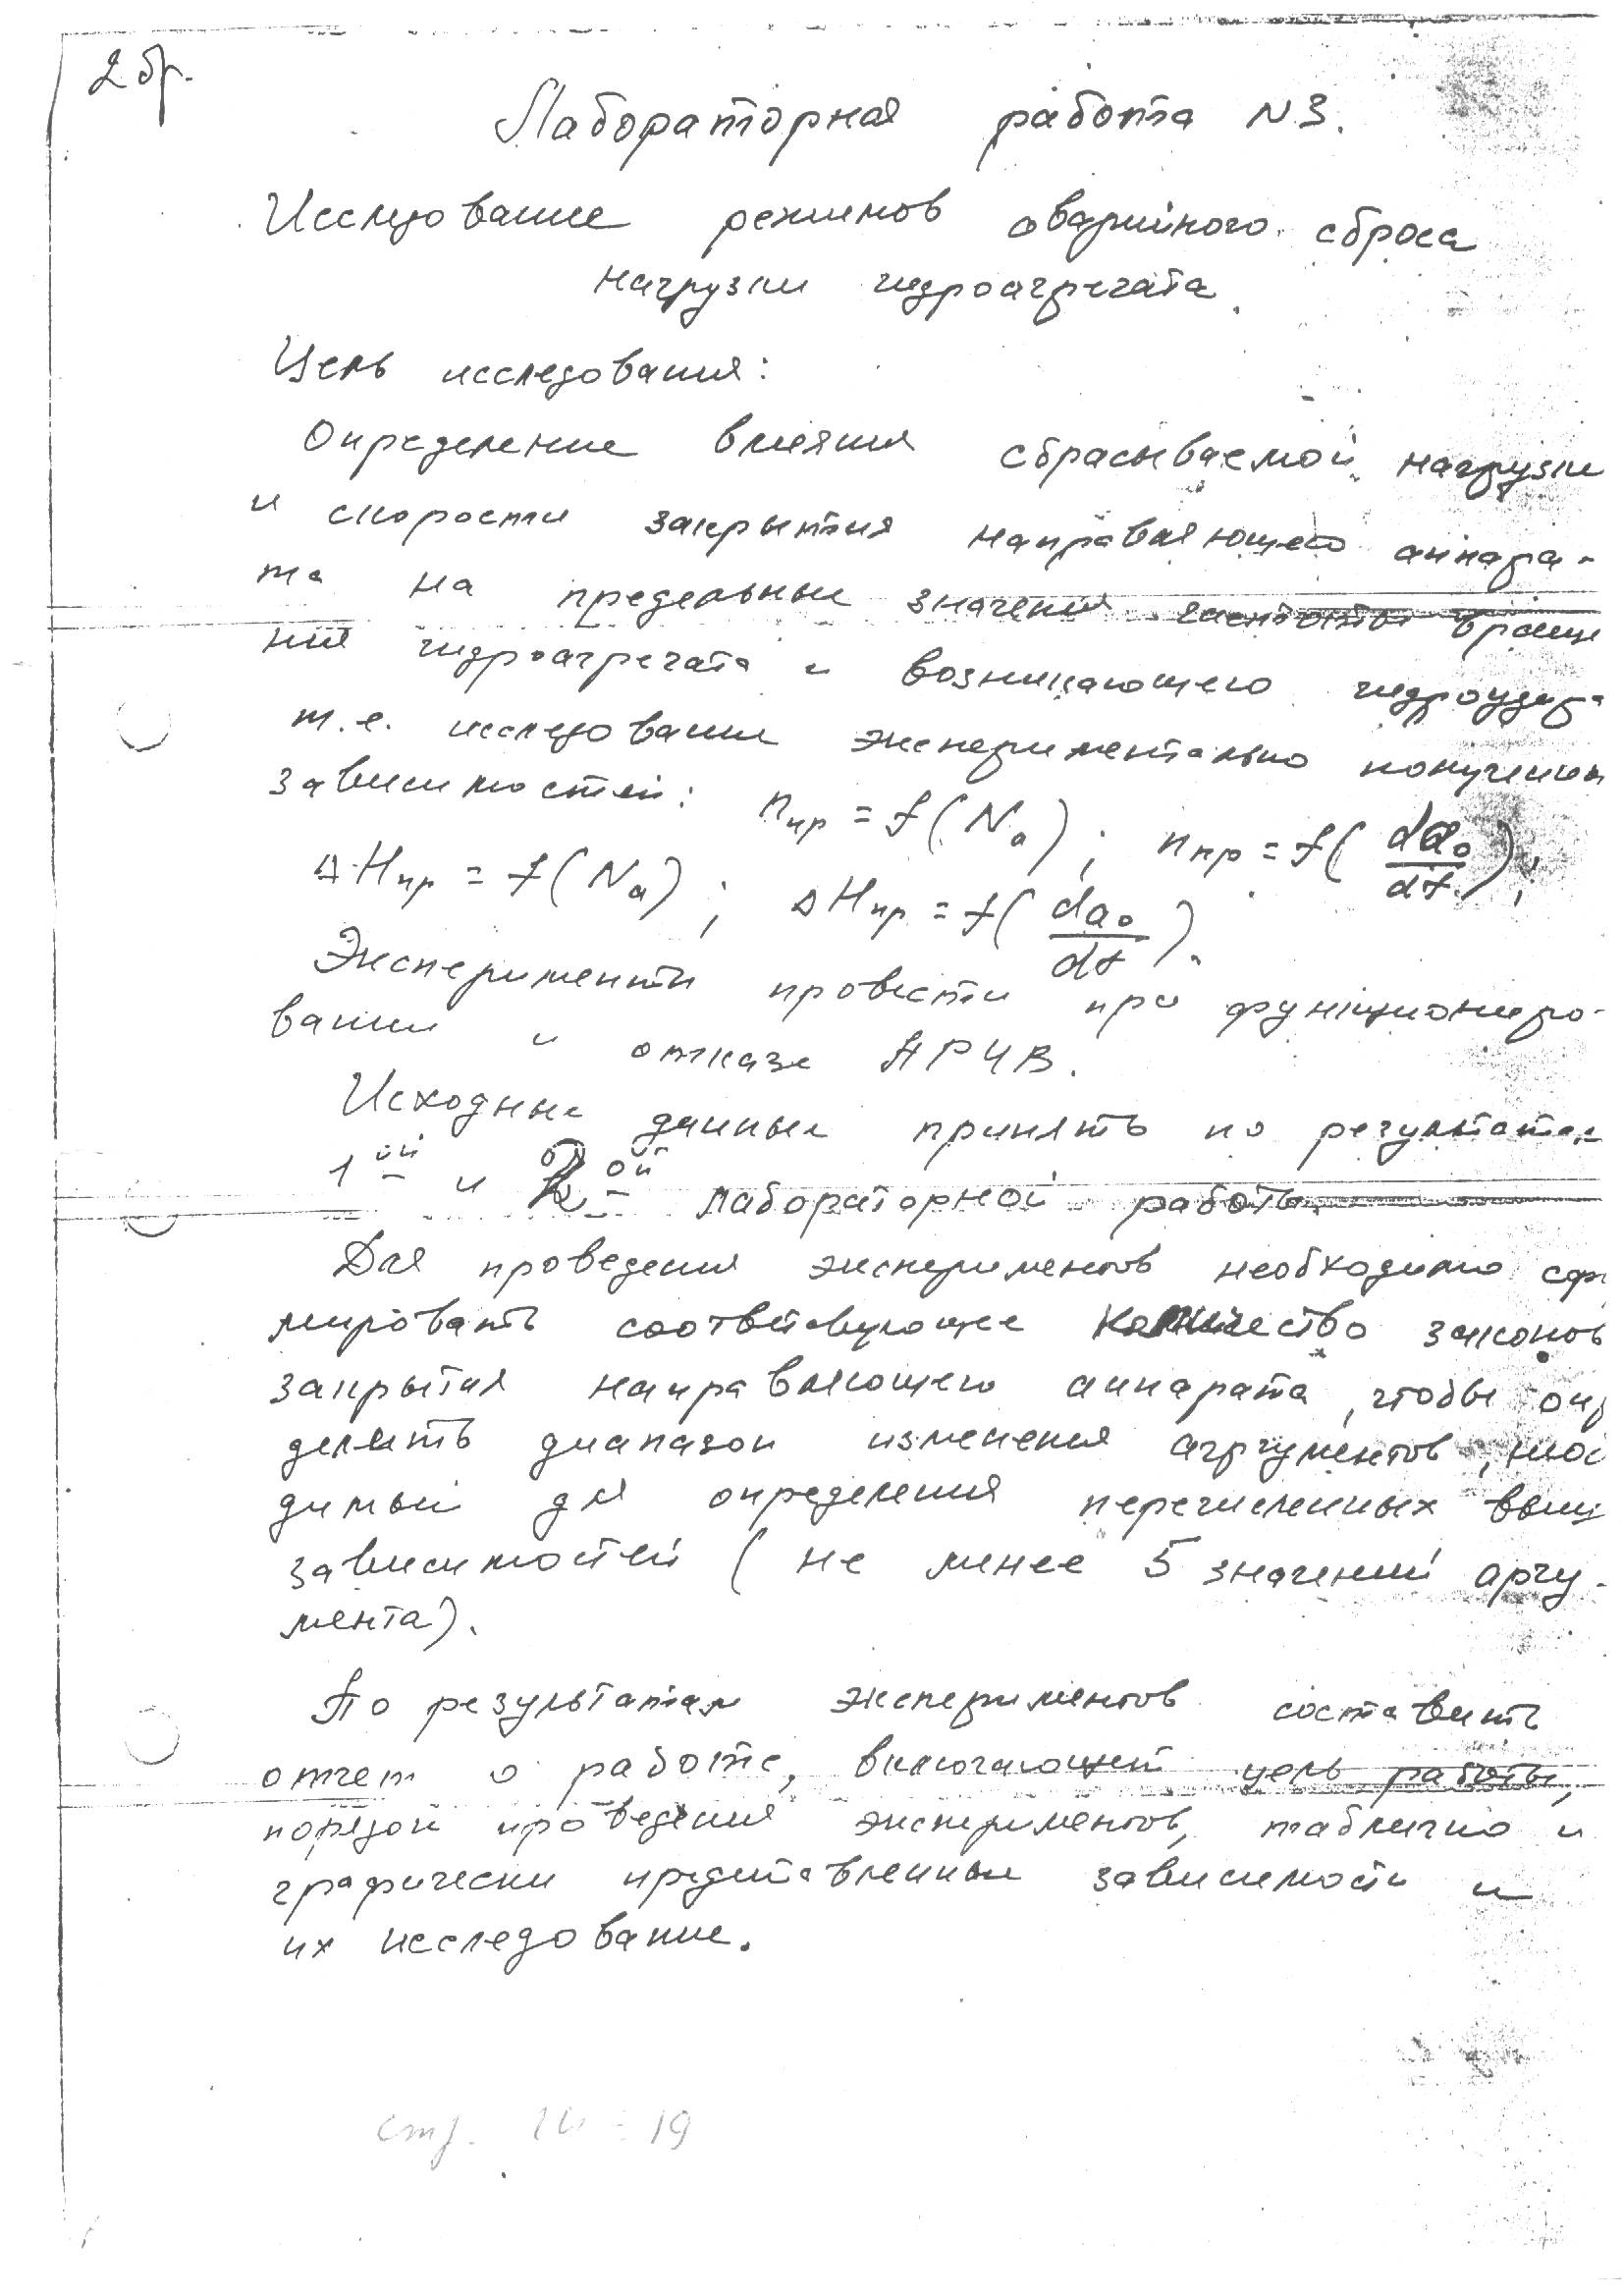 2 бр.
Лабораторная работа N3.
Исследование режимов аварийного сброса
нагрузки гидроагрегата.
Цель исследования:
Определение влияния сбрасываемой нагрузки
и скорости закрытия направляющего аппара-
та на предельные значения частоты враще
ния гидроагрегата и возникающего гидроудара
т.е. исследование экспериментально получению
зависимостей: nпр = f(Na); nпр = f(da₀/dt);
ΔHпр = f(Na); ΔHпр = f(da₀/dt).
Эксперименты провести при функциониро-
вании и отказе АРЧВ.
Исходные данные принять по результатам
1ой и 2ой лабораторной работы.
Для проведения экспериментов необходимо сфор
мировать соответствующее количество законов
закрытия направляющего аппарата, чтобы опр
делить диапазон изменения аргументов,
димый для определения перечисленных выш
зависимостей (не менее 5 значений аргу-
мента).
По результатам экспериментов составить
отчет о работе, включающий цель работы,
порядок проведения экспериментов, таблично и
графически представленные зависимости и
их исследование.
стр. 19